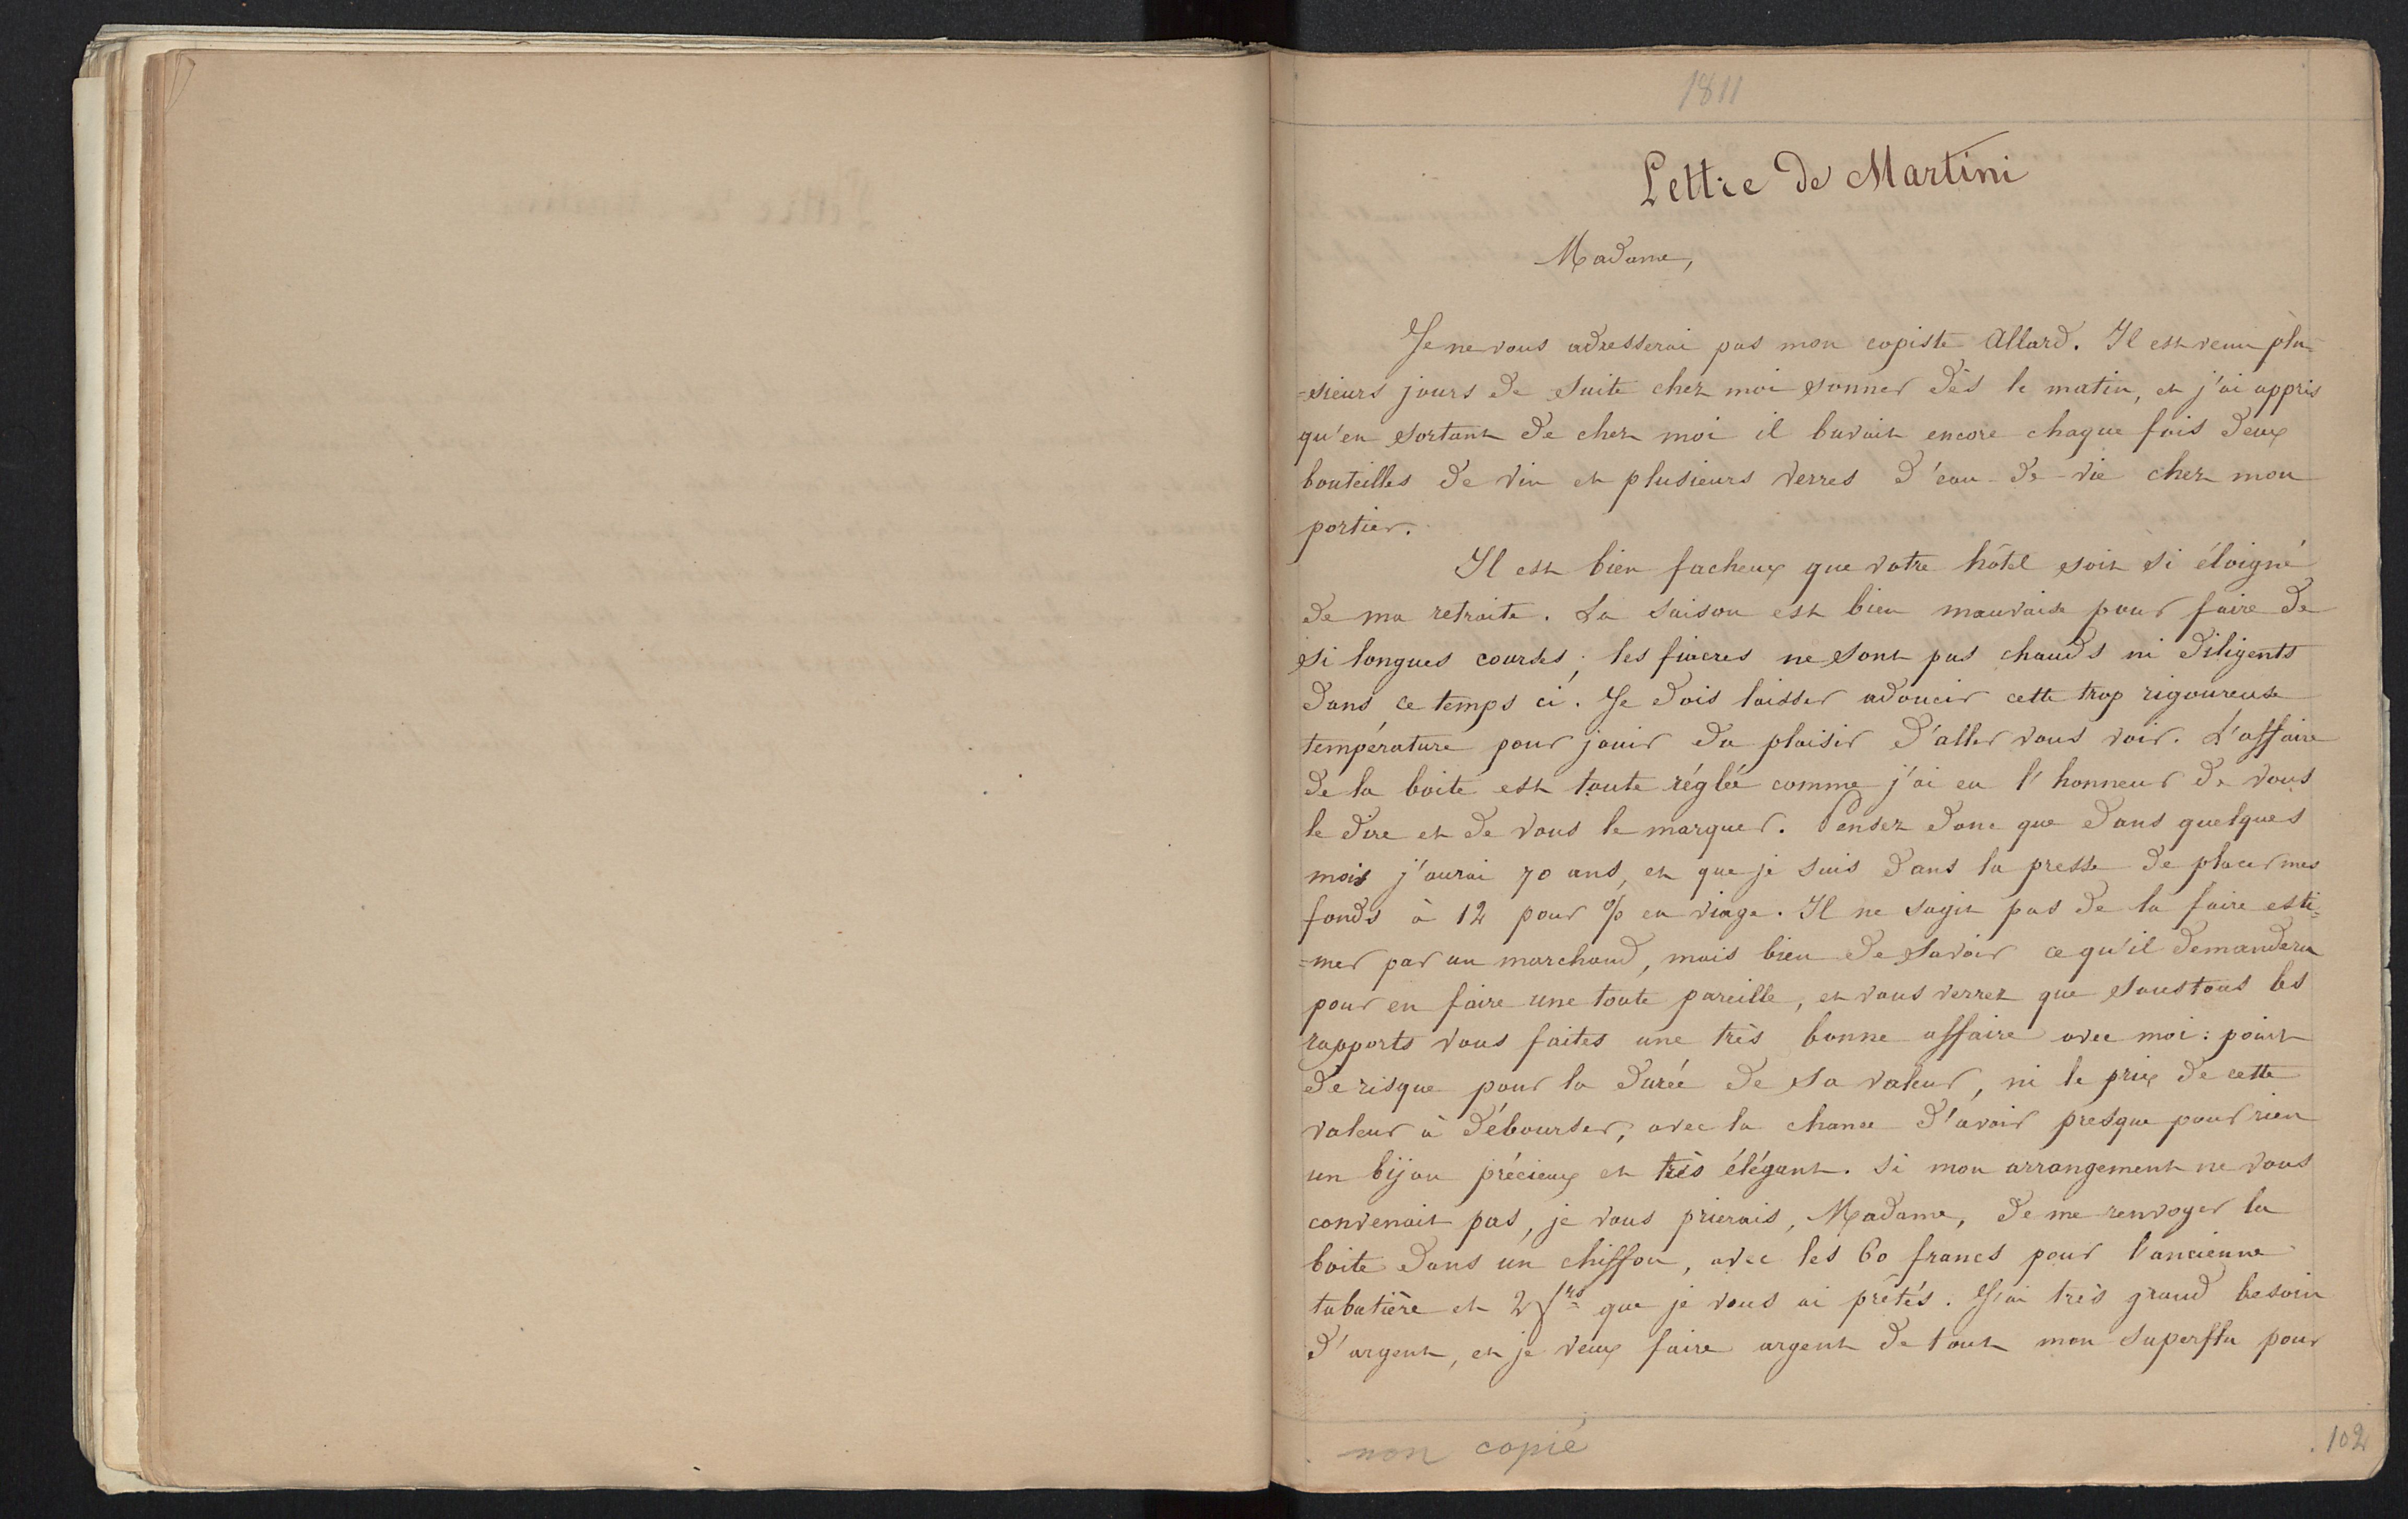 1811
Lettre de Martini
Madame,
Je ne vous adresserai pas mon copiste Allard. Il est venu plu=
=sieurs jours de suite chez moi sonner dès le matin, et j'ai appris
qu'en sortant de chez moi il buvait encore chaque fois deux
bouteilles de vin et plusieurs verres d'eau-de-vie chez mon
portier.
Il est bien facheux que votre hôtel soit si éloigné
de ma retraite. La saison est bien mauvaise pour faire de
si longues courses; les fiacres ne sont pas chauds ni diligents
dans ce temps ci. Je dois laisser adoucir cette trop rigoureuse
température pour jouir du plaisir d'aller vous voir. L'affaire
de la boite est toute réglée comme j'ai eu l'honneur de vous
le dire et de vous le marquer. Pensez donc que dans quelques
mois j'aurai 70 ans, et que je suis dans la presse de placer mes
fonds à 12 pour % en viage. Il ne sagit pas de la faire esti=
=mer par un marchand, mais bien de savoir ce qu'il demandera
pour en faire une toute pareille, et vous verrez que sous tous les
rapports vous faites une très bonne affaire avec moi: point
de risque pour la durée de sa valeur, ni le prix de cette
valeur à débourser, avec la chance d'avoir presque pour rien
un bijou précieux et très élégant. Si mon arrangement ne vous
convenait pas, je vous prierais, Madame, de me renvoyer la
boite dans un chiffon, avec les 60 francs pour l'ancienne
tabatière et 2 frs que je vous ai prêtés. J'ai très grand besoin
d'argent, et je veux faire argent de tout mon superflu pour
non copié
102